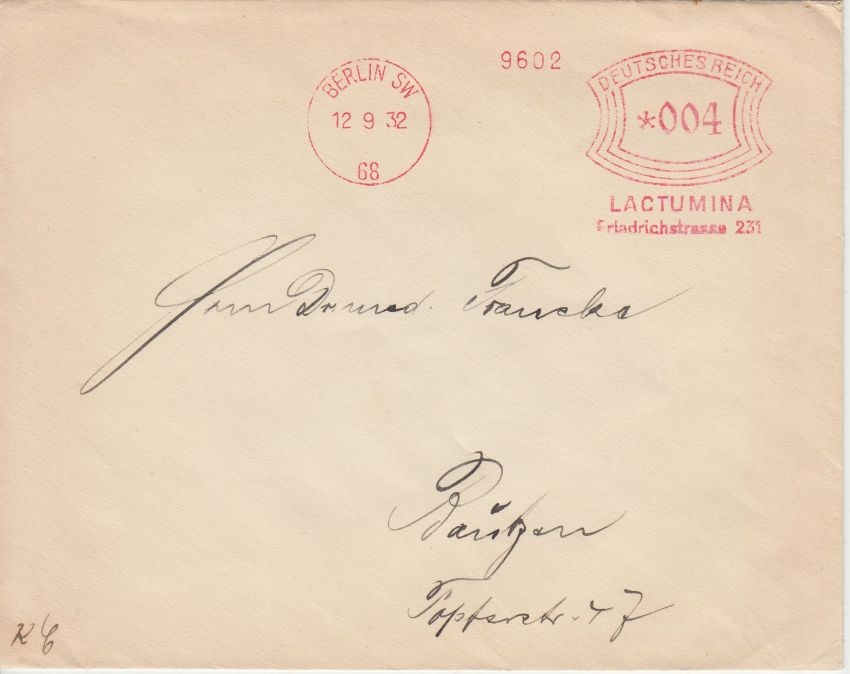 9602
BERLIN SW
12 9 32
68
DEUTSCHES REICH
*004
LACTUMINA
Friedrichstrasse 231
Herrn Dr. med. Francke
Bautzen
Töpferstr. 47